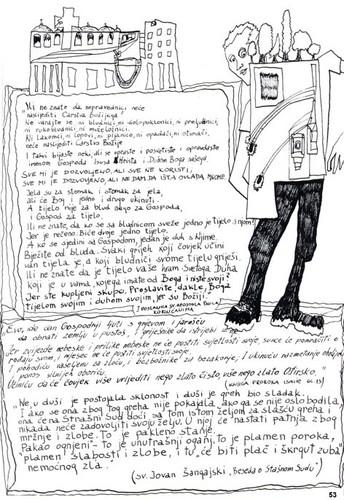 "Vi ne znate da nepravednici neće
naslijediti Carstva Božijega?
Ne varajte se ni bludnici, ni idolopoklonici, ni preljubnici,
ni rukobludnici, ni muželožnici,
ni lakomci, ni lopovi, ni pijanice, ni opadači, ni otimači,
neće naslijediti Carstvo Božije
I takvi bijaste neki, ali se opraste i posvetiste i opravdaste
imenom Gospoda Isusa Hrista i Duhom Boga našega
SVE MI JE DOZVOLJENO, ALI SVE NE KORISTI,
SVE MI JE DOZVOLJENO, ALI NE DAM DA IŠTA OVLADA MNOME
Jela su za stomak i stomak za jela,
ali će Bog i jedno i drugo ukinuti.
A tijelo nije za blud nego za Gospoda,
i Gospod za tijelo.
Ili ne znate, da ko se sa bludnicom sveže jedno je tijelo s njom?
Jer je rečeno: Biće dvoje jedno tijelo.
A ko se sjedini sa Gospodom, jedan je duh s Njime.
Bježite od bluda. Svaki grijeh koji čovjek učini
van tijela je, a koji bludniči svome tijelu griješi.
Ili ne znate da je tijelo vaše hram Svetoga Duha
koji je u vama, kojega imate od Boga i niste svoji?
Jer ste kupljeni skupo. Proslavite, dakle, Boga
tijelom svojim i duhom svojim, jer su Božiji."
I POSLANICA SV. APOSTOLA PAVLA
KORINĆANIMA
Evo, ide dan Gospodnji ljuti s gnjevom i jarošću
da obrati zemlju u pustoš, i grješnike da istrijebi iz nje.
Jer zvijezde nebeske i prilike nebeske ne će pustiti svjetlosti svoje, sunce će pomrčati o
rođaju svom, i mjesec ne će pustiti svjetlosti svoje.
I pohodiću vaseljenu za zloću, i bezbožnike za bezakonje, i ukinuću razmetanje oholijeh,
ponos silnijeh oboriću.
Učiniću da će čovjek više vrijediti nego zlato čisto, više nego zlato Ofirsko."
(KNJIGA PROROKA ISAIJE GL 13)
"Ne, u duši je postojala sklonost i duši je greh bio sladak.
I ako se ona zbog tog greha nije pokajala, ako ga se nije oslobodila,
ona će na Strašni Sud doći sa tom istom željom za slašću greha i
nikada neće zadovoljiti svoju želju. U njoj će nastati patnja zbog
mržnje i zlobe. To je paklено stanje.
Pakao ognjeni - to je unutrašnji oganj, to je plamen poroka,
"plamen slabosti i zlobe, i tu će biti plač i škrgut zuba"
nemoćnog zla."
(sv. Jovan Šangajski, Beseda o Strašnom Sudu)
53